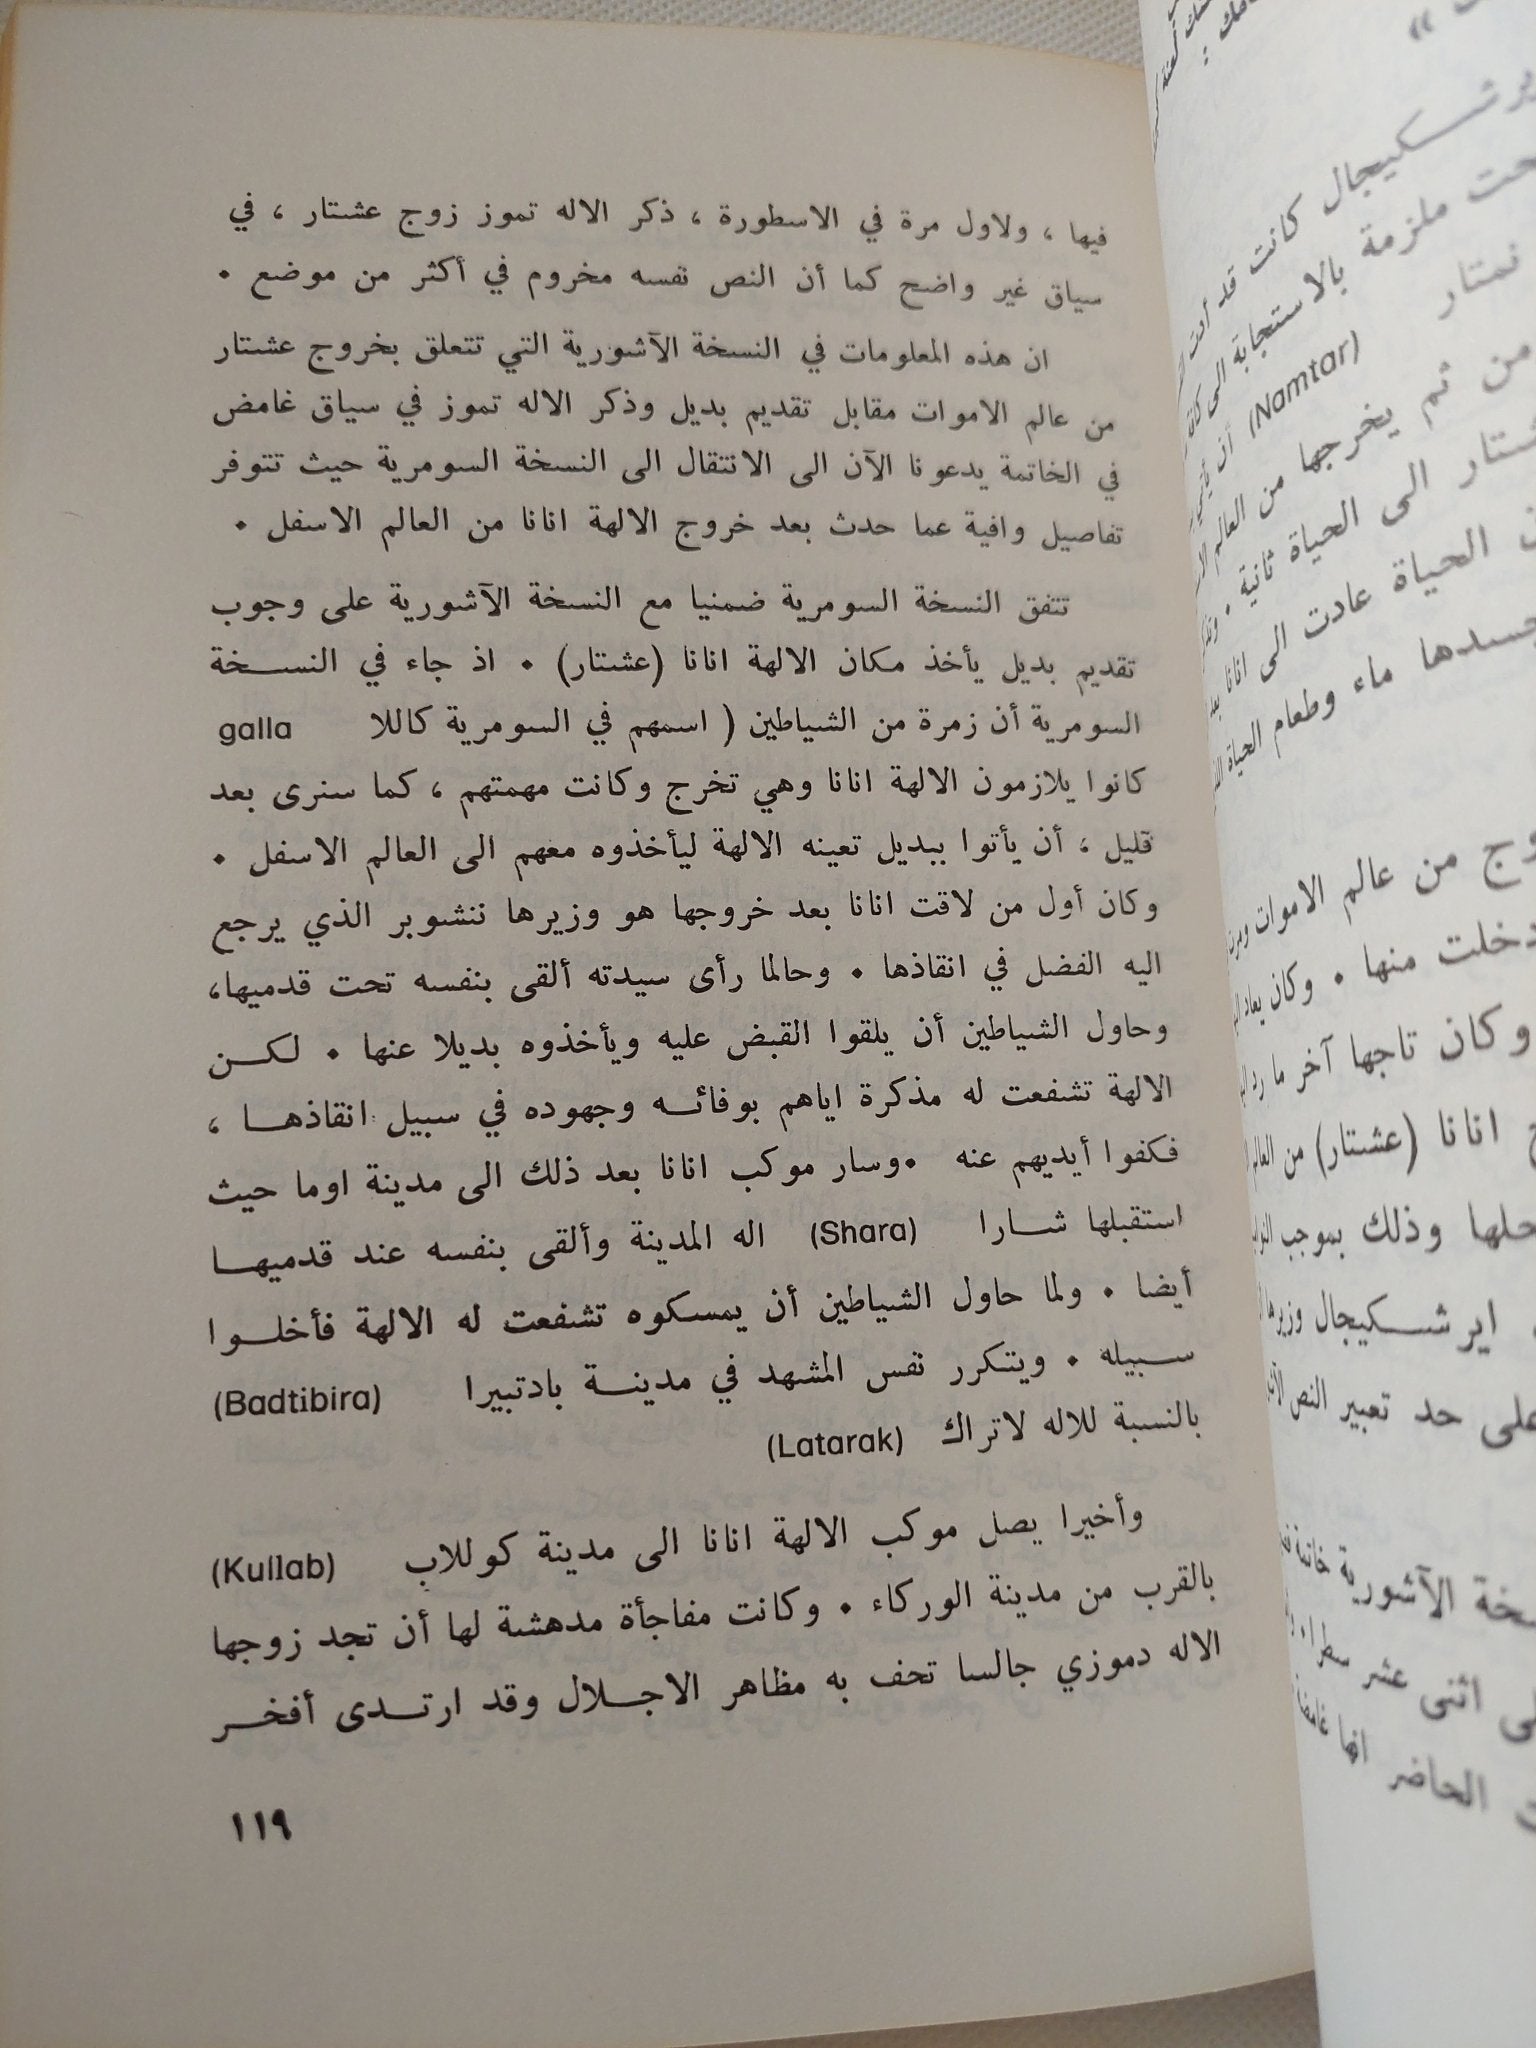 فيها ، ولاول مرة في الاسطورة ، ذكر الاله تموز زوج عشتار ، في
سياق غير واضح كما أن النص نفسه مخروم في أكثر من موضع .
ان هذه المعلومات في النسخة الآشورية التي تتعلق بخروج عشتار
من عالم الاموات مقابل تقديم بديل وذكر الاله تموز في سياق غامض
في الخاتمة يدعونا الآن الى الانتقال الى النسخة السومرية حيث تتوفر
تفاصيل وافية عما حدث بعد خروج الالهة انانا من العالم الاسفل .
تتفق النسخة السومرية ضمنيا مع النسخة الآشورية على وجوب
تقديم بديل يأخذ مكان الالهة انانا (عشتار) . اذ جاء في النسخة
السومرية أن زمرة من الشياطين ( اسمهم في السومرية كاللا galla
كانوا يلازمون الالهة انانا وهي تخرج وكانت مهمتهم ، كما سنرى بعد
قليل ، أن يأتوا ببديل تعينه الالهة ليأخذوه معهم الى العالم الاسفل .
وكان أول من لاقت انانا بعد خروجها هو وزيرها ننشوبر الذي يرجع
اليه الفضل في انقاذها . وحالما رأى سيدته ألقى بنفسه تحت قدميها،
وحاول الشياطين أن يلقوا القبض عليه ويأخذوه بديلا عنها . لكن
الالهة تشفعت له مذكرة اياهم بوفائه وجهوده في سبيل انقاذها ،
فكفوا أيديهم عنه .وسار موكب انانا بعد ذلك الى مدينة اوما حيث
استقبلها شارا (Shara) اله المدينة وألقى بنفسه عند قدميها
أيضا . ولما حاول الشياطين أن يمسكوه تشفعت له الالهة فأخلوا
سبيله . ويتكرر نفس المشهد في مدينة بادتبيرا (Badtibira)
بالنسبة للاله لاتراك (Latarak)
وأخيرا يصل موكب الالهة انانا الى مدينة كوللاب (Kullab)
بالقرب من مدينة الوركاء . وكانت مفاجأة مدهشة لها أن تجد زوجها
الاله دموزي جالسا تحف به مظاهر الاجلال وقد ارتدى أفخر
١١٩
كانت قد
ملزمة بالاستجابة الى
نمتار (Namtar) أن
من ثم يخرجها من العالم
الى الحياة ثانية .
الحياة عادت الى انانا
ماء وطعام الحياة
من عالم الاموات
دخلت منها . وكان يعاد
وكان تاجها آخر ما رد
انانا (عشتار) من العالم
وذلك بموجب
ايرشكيجال وزيرها
على حد تعبير النص
الآشورية خاتمة
اثنى عشر سطرا
الحاضر انها غامضة